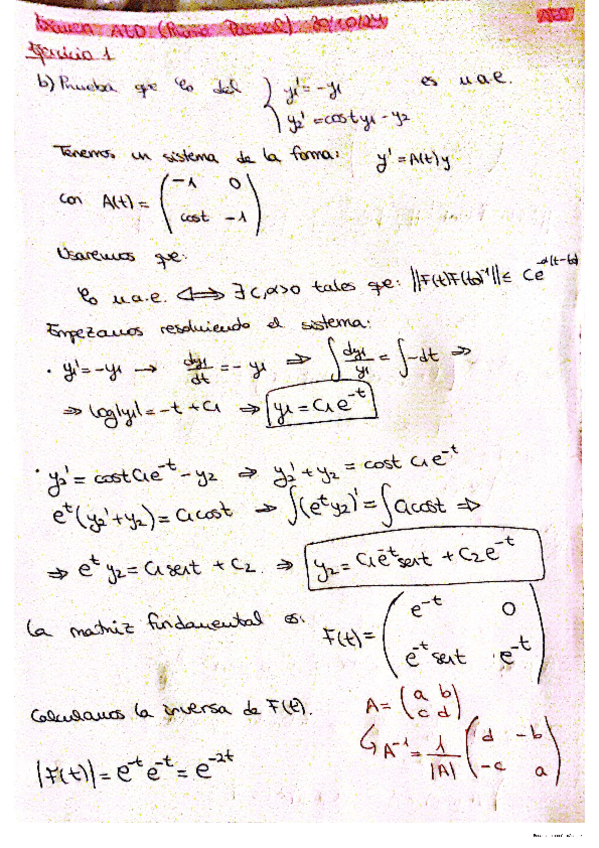 Examen AED (Primer Parcial) 30/10/24
AED
Ejercicio 1
b) Prueba que C₀ del { y₁' = -y₁ es u.a.e.
y₂' = cost y₁ - y₂
Tenemos un sistema de la forma: y' = A(t)y
con A(t) = ( -1 0
cost -1 )
Usaremos que:
C₀ u.a.e. ⟺ ∃ C,α>0 tales que: ||F(t)F(t₀)⁻¹|| ≤ Ce^{-α(t-t₀)}
Empezamos resolviendo el sistema:
· y₁' = -y₁ → dy₁/dt = -y₁ ⇒ ∫ dy₁/y₁ = ∫ -dt ⇒
⇒ log|y₁| = -t + C₁ ⇒ y₁ = C₁e^{-t}
· y₂' = cost C₁e^{-t} - y₂ ⇒ y₂' + y₂ = cost C₁e^{-t}
e^t (y₂' + y₂) = C₁cost ⇒ ∫(e^t y₂)' = ∫ C₁cost ⇒
⇒ e^t y₂ = C₁ sent + C₂. ⇒ y₂ = C₁e^{-t}sent + C₂e^{-t}
La matriz fundamental es: F(t) = ( e^{-t} 0
e^{-t} sent e^{-t} )
Calculamos la inversa de F(t). A = ( a b
c d )
|F(t)| = e^{-t} e^{-t} = e^{-2t} ↳ A⁻¹ = 1/|A| ( d -b
-c a )